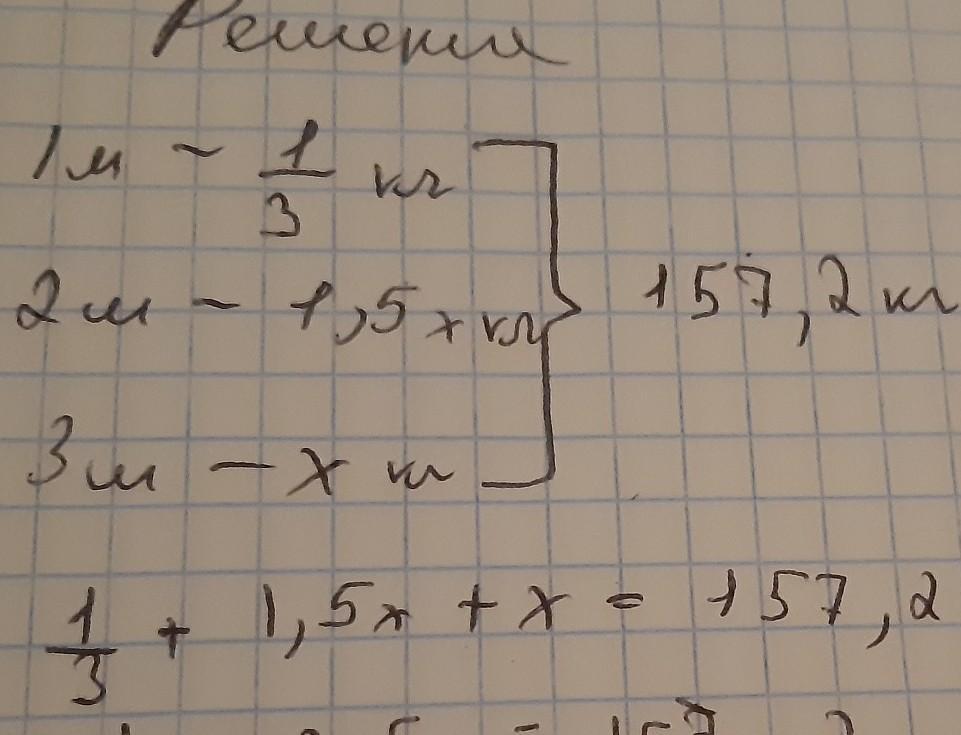 Решение
1м - 1/3 кг
2м - 1,5x кг
3м - x кг
157,2 кг
1/3 + 1,5x + x = 157,2